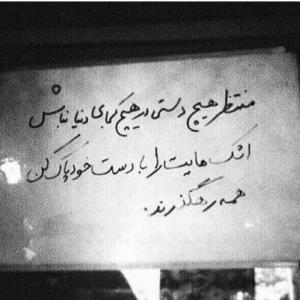 منتظر هیچ دستی در هیچ کجای دنیا نباش
اشک هایت را با دست خود پاک کن
همه رهگذرند.